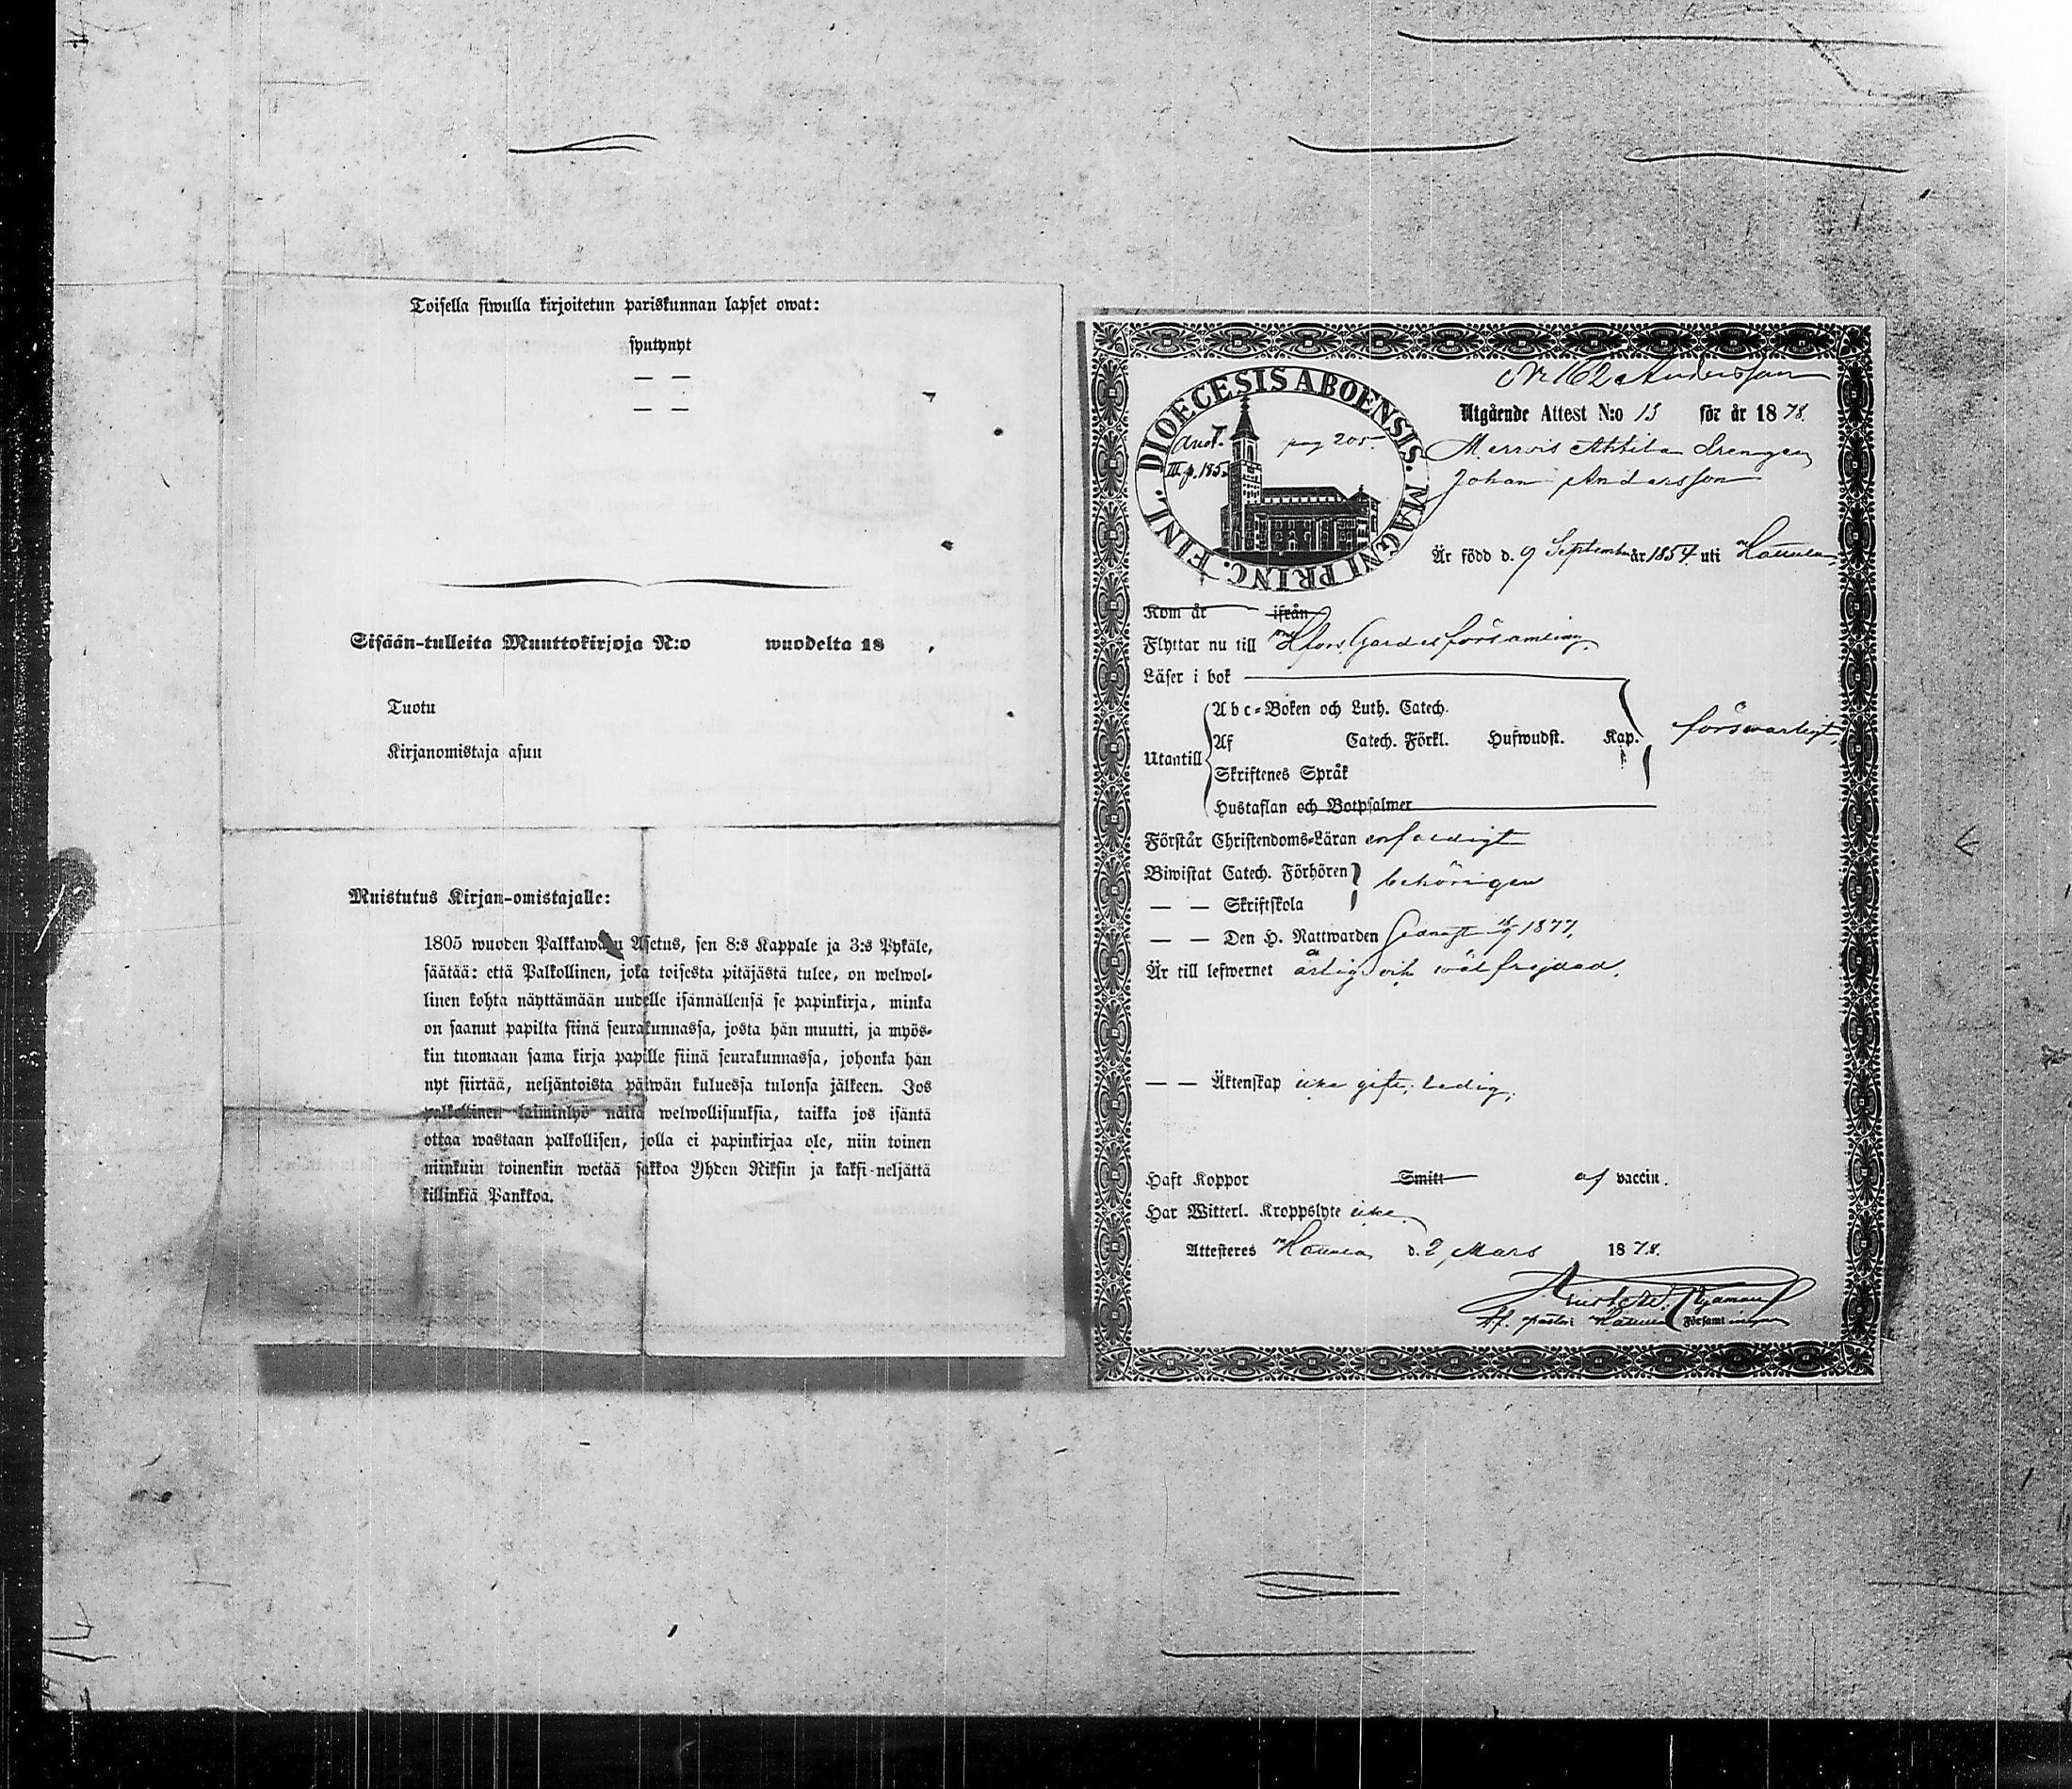 Toisella siwulla kirjoitetun pariskunnan lapset owat:
syntynyt
— —
— —
Sisään-tulleita Muuttokirjoja N:o wuodelta 18 .
Tuotu
Kirjanomistaja asuu
Muistutus Kirjan-omistajalle:
1805 wuoden Palkkawäen Asetus, sen 8:s Kappale ja 3:s Pykäle,
säätää: että Palkollinen, joka toisesta pitäjästä tulee, on welwol-
linen kohta näyttämään uudelle isännällensä se papinkirja, minka
on saanut papilta siinä seurakunnassa, josta hän muutti, ja myös-
kin tuomaan sama kirja papille siinä seurakunnassa, johonka hän
nyt siirtää, neljäntoista päiwän kuluessa tulonsa jälkeen. Jos
palkollinen laiminlyö näitä welwollisuuksia, taikka jos isäntä
ottaa wastaan palkollisen, jolla ei papinkirjaa ole, niin toinen
niinkuin toinenkin wetää sakkoa Yhden Riksin ja kaksi-neljättä
killinkiä Pankkoa.
Nr 162 Andersson
DIOECESIS ABOENSIS. MAGNI PRINC. FINL.
Utgående Attest N:o 13 för år 1878.
pag 205
III p. 185
Drengen
Johan Andersson
Är född d. 9 September år 1854 uti
Kom år ifrån
Flyttar nu till Hfors Gardes församling.
Läser i bok
Abc-Boken och Luth. Catech.
Utantill Af Catech. Förkl. Hufwudst. Kap. försvarligt.
Skriftenes Språk
Hustaflan och Botpsalmer
Förstår Christendoms-Läran enfaldigt
Biwistat Catech. Förhören behörigen
— — Skriftskola
— — Den H. Nattwarden 1877.
Är till lefwernet ärlig och wäl frejdad.
— — Äktenskap icke gift; ledig.
Haft Koppor Smitt af vaccin.
Har Witterl. Kroppslyte icke
Attesteres d. 2 Mars 1878.
Församlingen